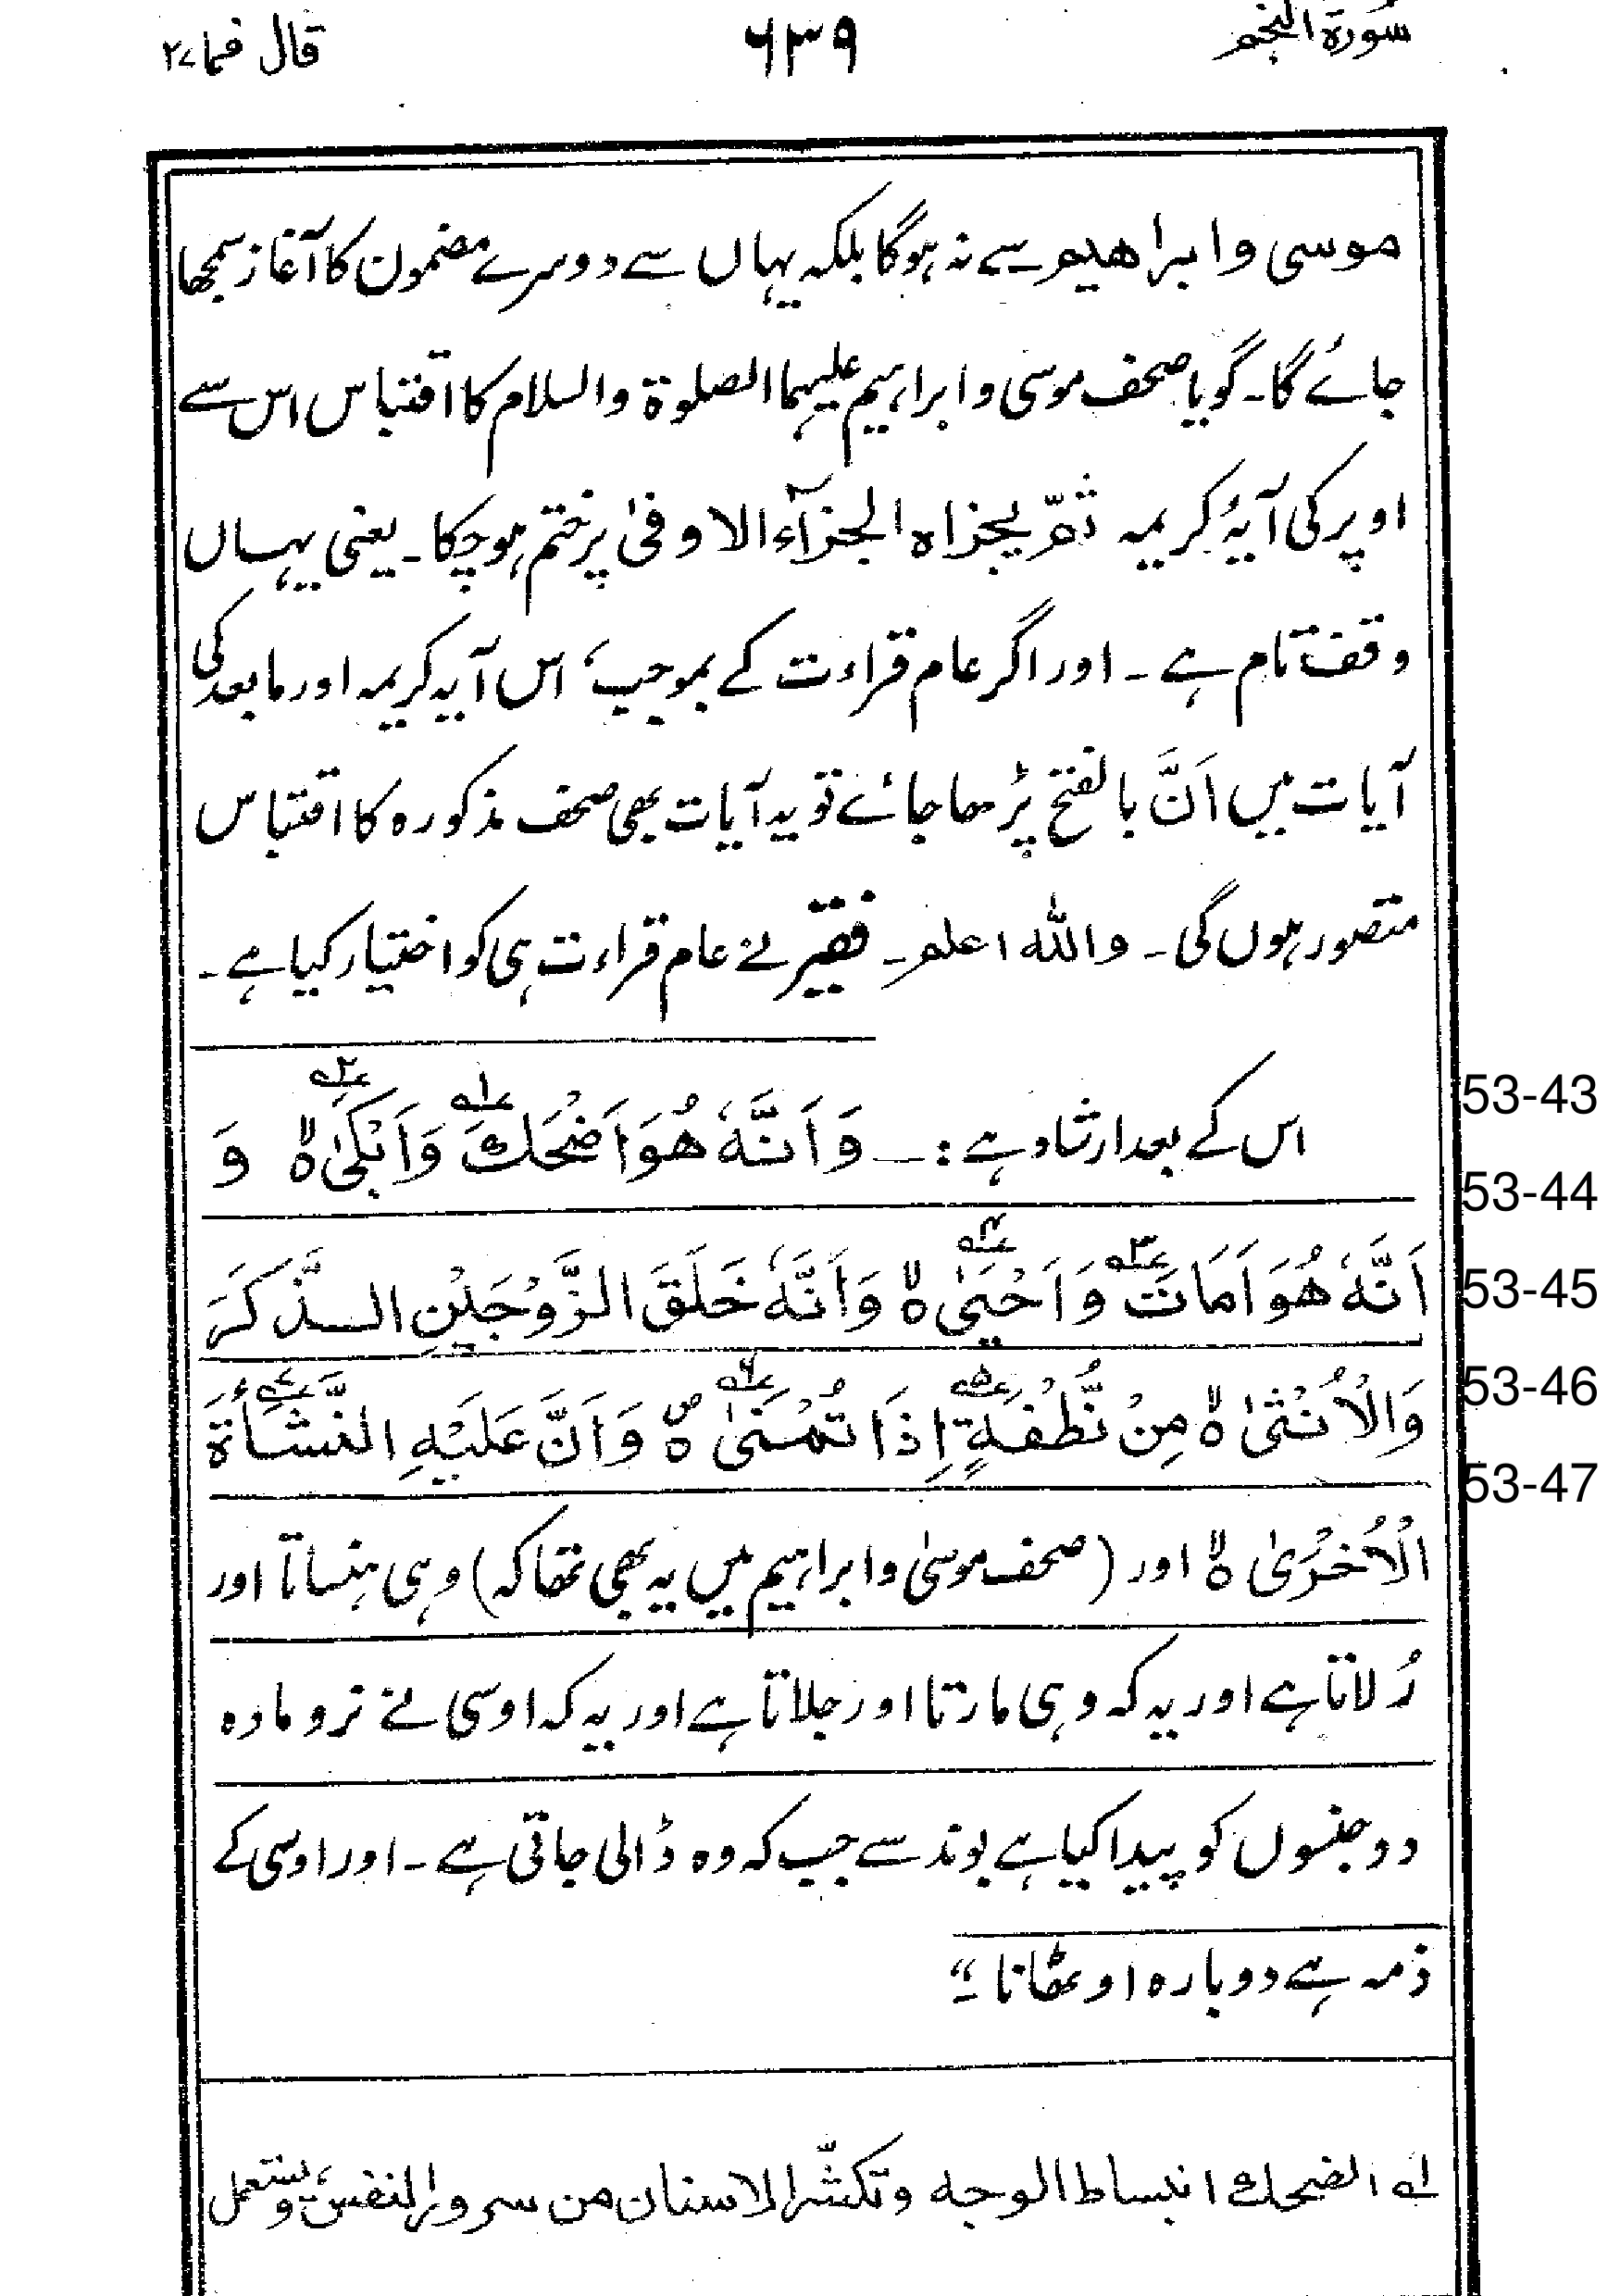 سُورۃ النجم
٦٣٩
قال فما ٢٧
موسی و ابراھیم سے نہ ہوگا بلکہ یہاں سے دوسرے مضمون کا آغاز سمجھا
جائے گا۔ گویا صحف موسی و ابراہیم علیہما الصلوۃ والسلام کا اقتباس اس سے
اوپر کی آیۂ کریمہ ثمّ یجزاہ الجزآء الاوفیٰ پر ختم ہوچکا۔ یعنی یہاں
وقف تام ہے۔ اور اگر عام قراءت کے بموجب، اس آیہ کریمہ اور مابعد کی
آیات میں اَنَّ بالفتح پڑھا جائے تو یہ آیات بھی صحف مذکورہ کا اقتباس
متصور ہوں گی۔ واللہ اعلم۔ فقیر نے عام قراءت ہی کو اختیار کیا ہے۔
اس کے بعد ارشاد ہے :۔ وَاَنَّہٗ ھُوَ اَضْحَكَ ؎۱ وَاَبْکٰیۙ ؎۲ ہ وَ
53-43
اَنَّہٗ ھُوَ اَمَاتَ ؎۳ وَاَحْیَیٰۙ ؎۴ ہ وَاَنَّہٗ خَلَقَ الزَّوْجَیْنِ الذَّکَرَ
53-44
53-45
وَالْاُنْثٰیۙ ہ مِنْ نُّطْفَةٍ ؎۵ اِذَا تُمْنٰی ؎۶ ہ وَاَنَّ عَلَیْہِ النَّشْاَةَ ؎۷
53-46
53-47
الْاُخْرٰیۙ ہ اور (صحف موسیٰ و ابراہیم میں یہ بھی تھا کہ) وہی ہنساتا اور
رُلاتا ہے اور یہ کہ وہی مارتا اور جلاتا ہے اور یہ کہ اوسی نے نر و مادہ
دو جنسوں کو پیدا کیا ہے بوند سے جب کہ وہ ڈالی جاتی ہے۔ اور اوسی کے
ذمہ ہے دوبارہ اوٹھانا ۔“
؎۱ الضحك انبساط الوجہ وتکشّر الاسنان من سرور النفس، ویستعمل